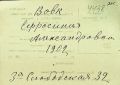 Вовк
Ефросиния
Александровна
1902
3я Слободская 32